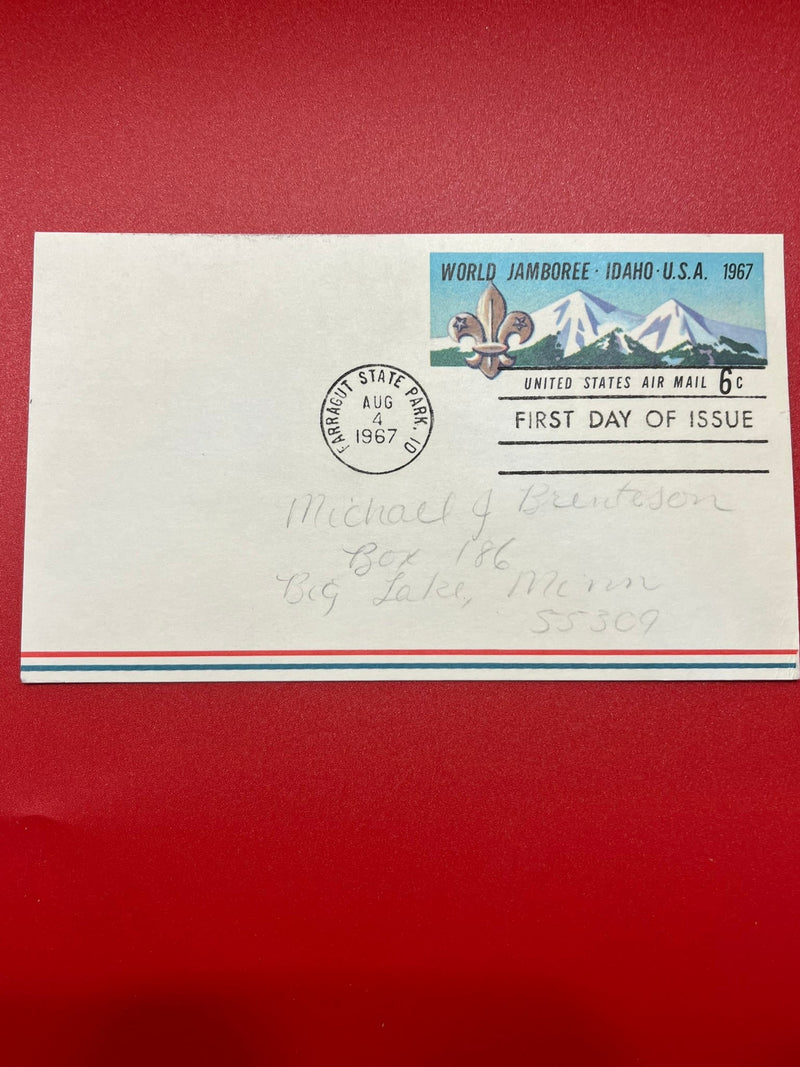 WORLD JAMBOREE · IDAHO · U.S.A. 1967
UNITED STATES AIR MAIL 6c
FARRAGUT STATE PARK, ID
AUG
4
1967
FIRST DAY OF ISSUE
Michael J Brenteson
Box 186
Big Lake, Minn
55309